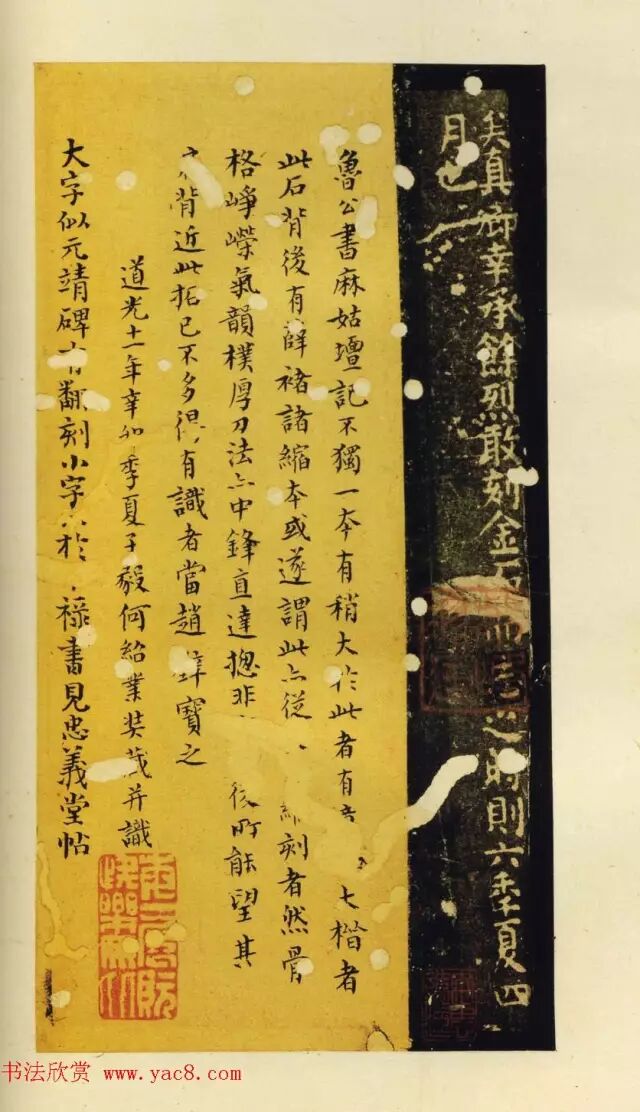 矣真卿幸承餘烈敢刻金石而志之時則六年夏四
月也
魯公書麻姑壇記不獨一本有稍大於此者有 七楷者
此石背後有薛褚諸縮本或遂謂此亦從 刻者然骨
格崢嶸氣韻樸厚刀法亦中鋒直達揔非 後所能望其
背近此拓已不多得有識者當趙璧寶之
道光十一年辛卯季夏子毅何紹業裝成并識
大字似元靖碑有翻刻小字 於 祿書見忠義堂帖
书法欣赏 www.yac8.com